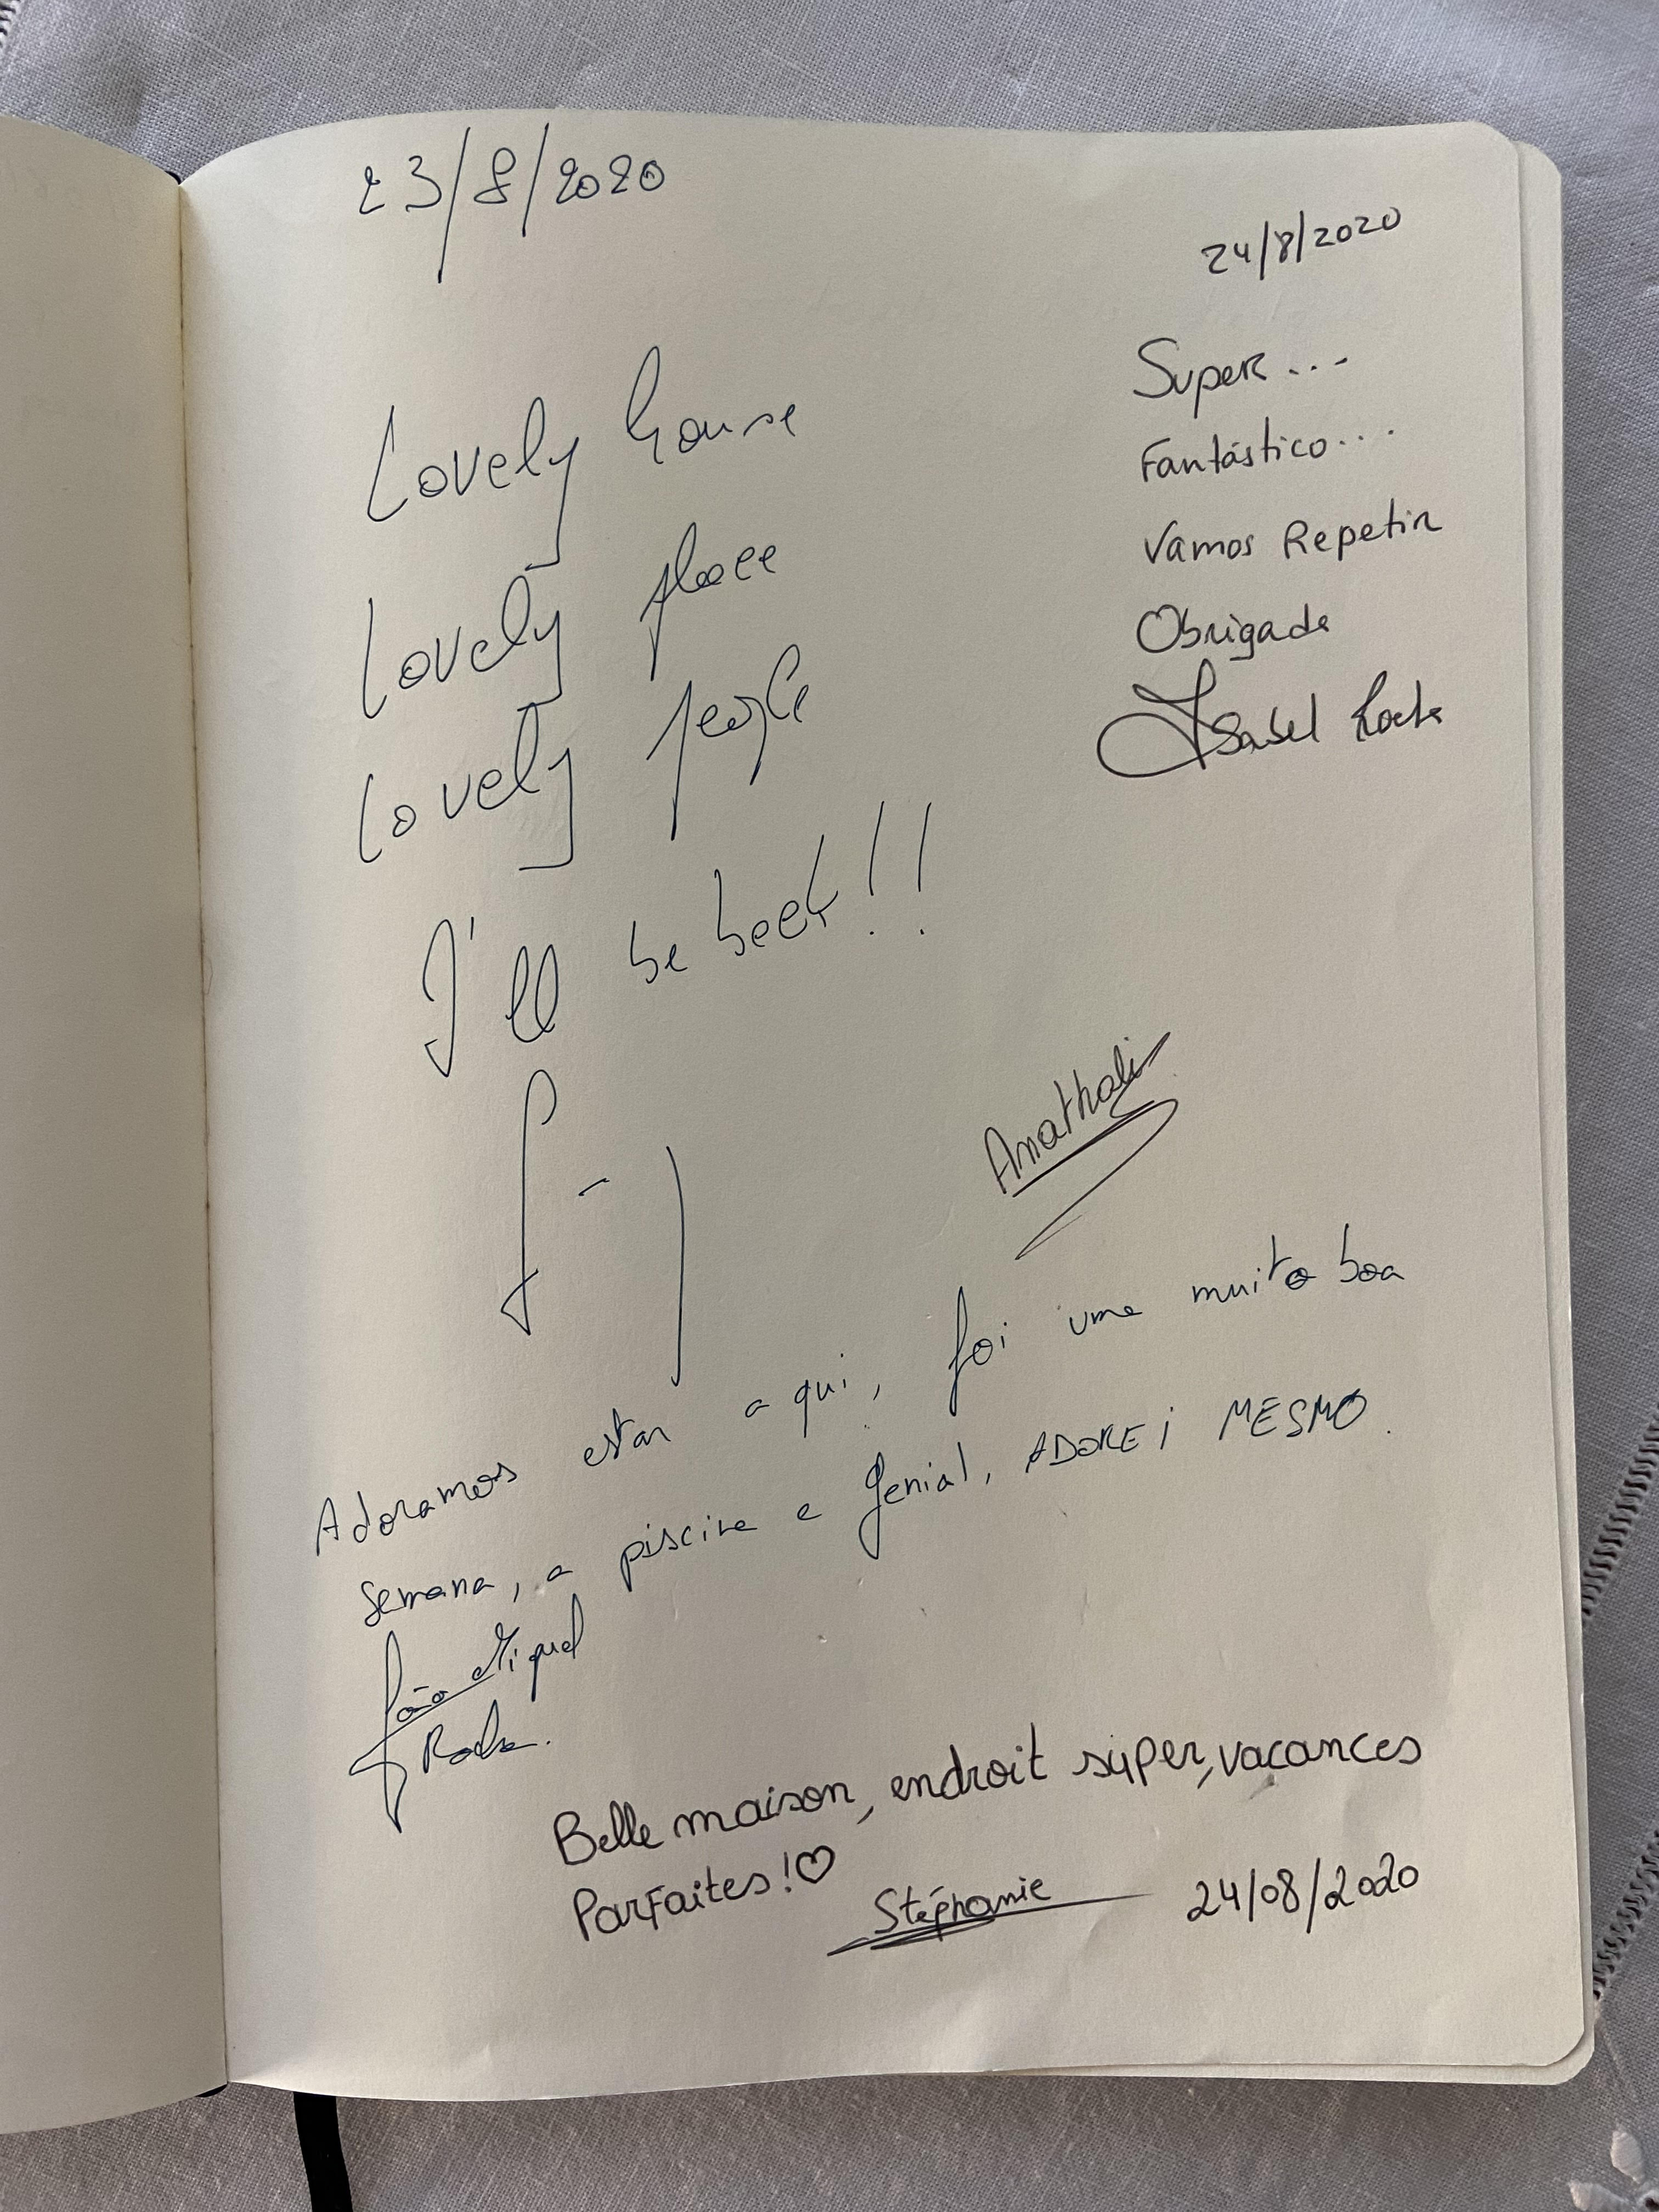 23/8/2020
Lovely house
Lovely place
Lovely people
I'll be back!!
24/8/2020
Super...
Fantástico...
Vamos Repetir
Obrigada
Isabel Rocha
Anathali
Adoramos estar aqui, foi uma muito boa
semana, a piscina e genial, ADOREI MESMO.
João Miguel
Rocha.
Belle maison, endroit super, vacances
Parfaites!♡
Stéphanie 24/08/2020